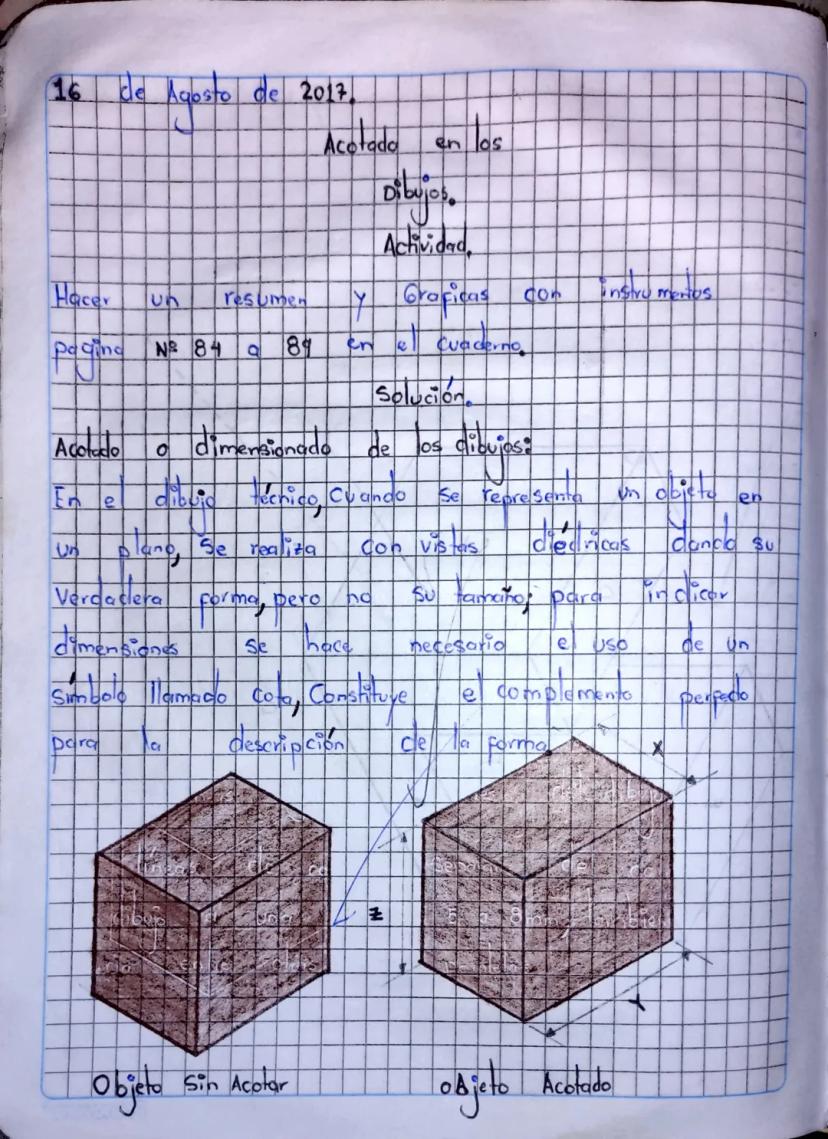 16 de Agosto de 2017.
Acotado en los
Dibujos.
Actividad.
Hacer un resumen y Graficas con instrumentos
pagina Nº 84 a 89 en el cuaderno.
Solución.
Acotado o dimensionado de los dibujos:
En el dibujo técnico, Cuando se representa un objeto en
un plano, Se realiza con vistas diédricas dando su
Verdadera forma, pero no su tamaño; para indicar
dimensiones se hace necesario el uso de un
símbolo llamado cota, Constituye el complemento perfecto
para la descripción de la forma
X
Z
Y
Objeto Sin Acotar
oBjeto Acotado